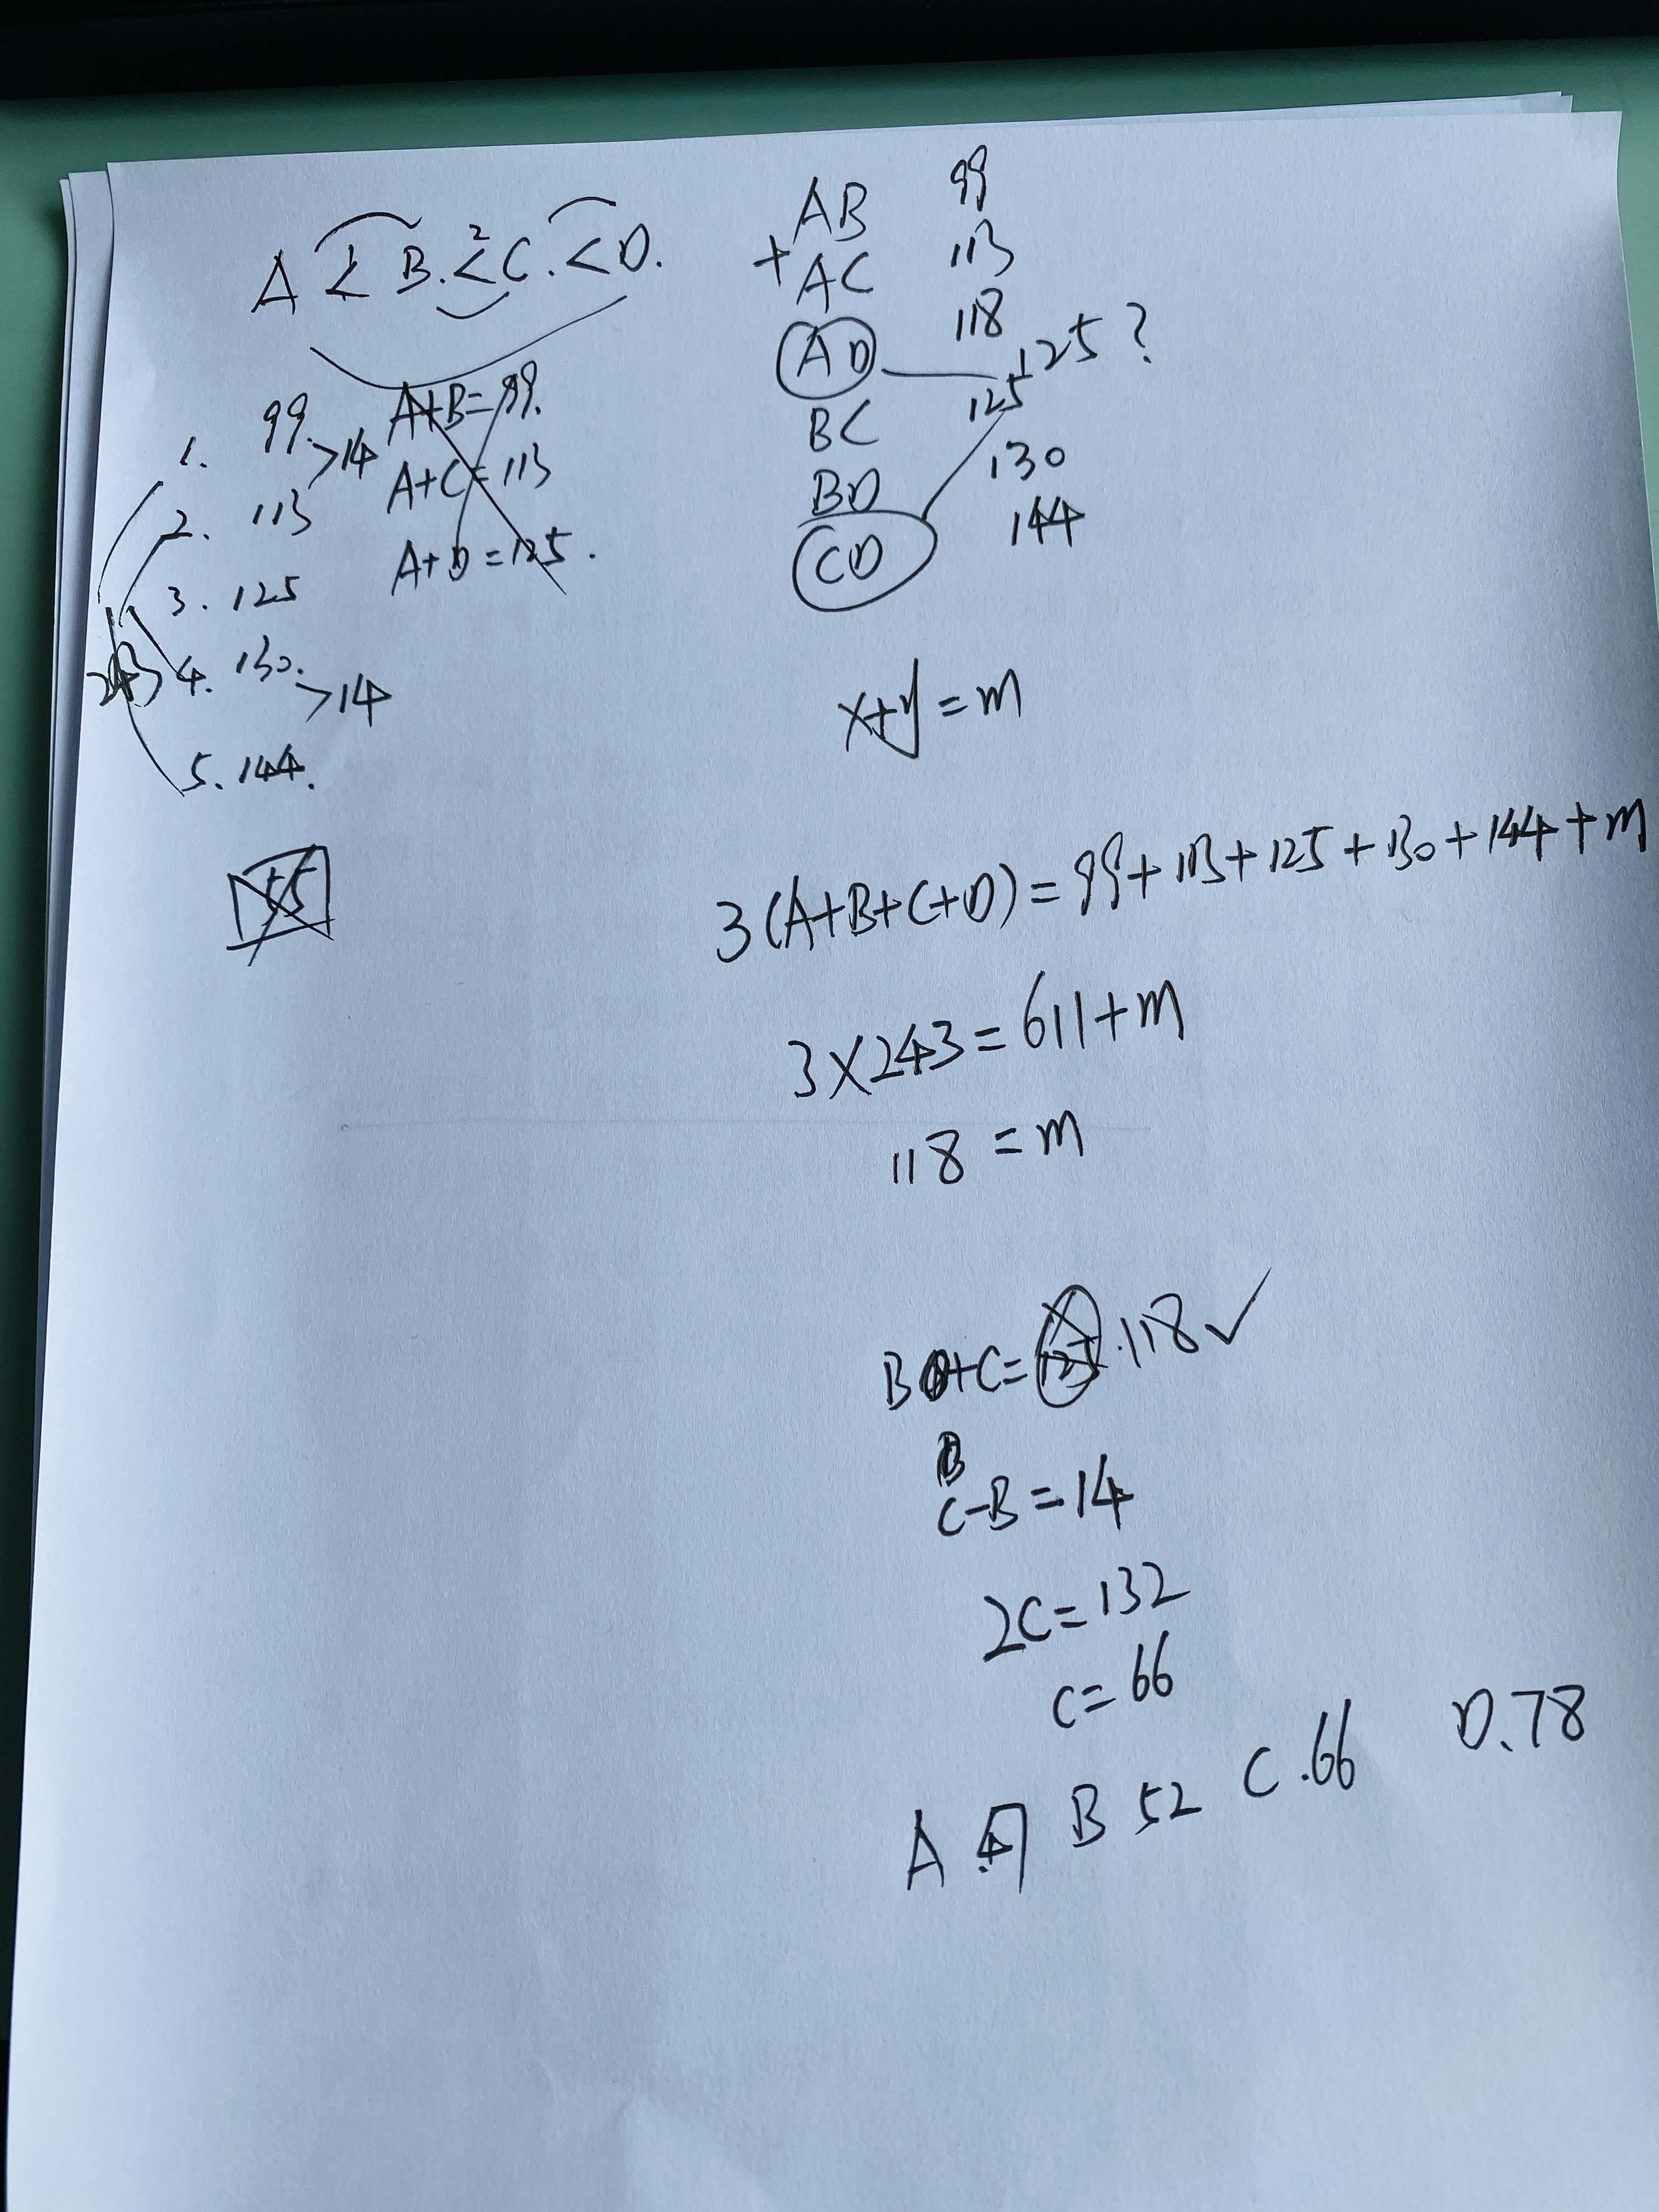 A < B. < C. < D.
2
1. 99. >14
2. 113
3. 125
243
4. 130. >14
5. 144.
A+B=99.
A+C=113
A+D=125.
55
AB 99
+
AC 113
AD 118
125?
BC 125
BD 130
CD 144
x+y=m
3(A+B+C+D)=99+113+125+130+144+m
3×243=611+m
118=m
B+C=125.118✓
B
C-B=14
2C=132
C=66
A 47 B 52 C.66 D.78